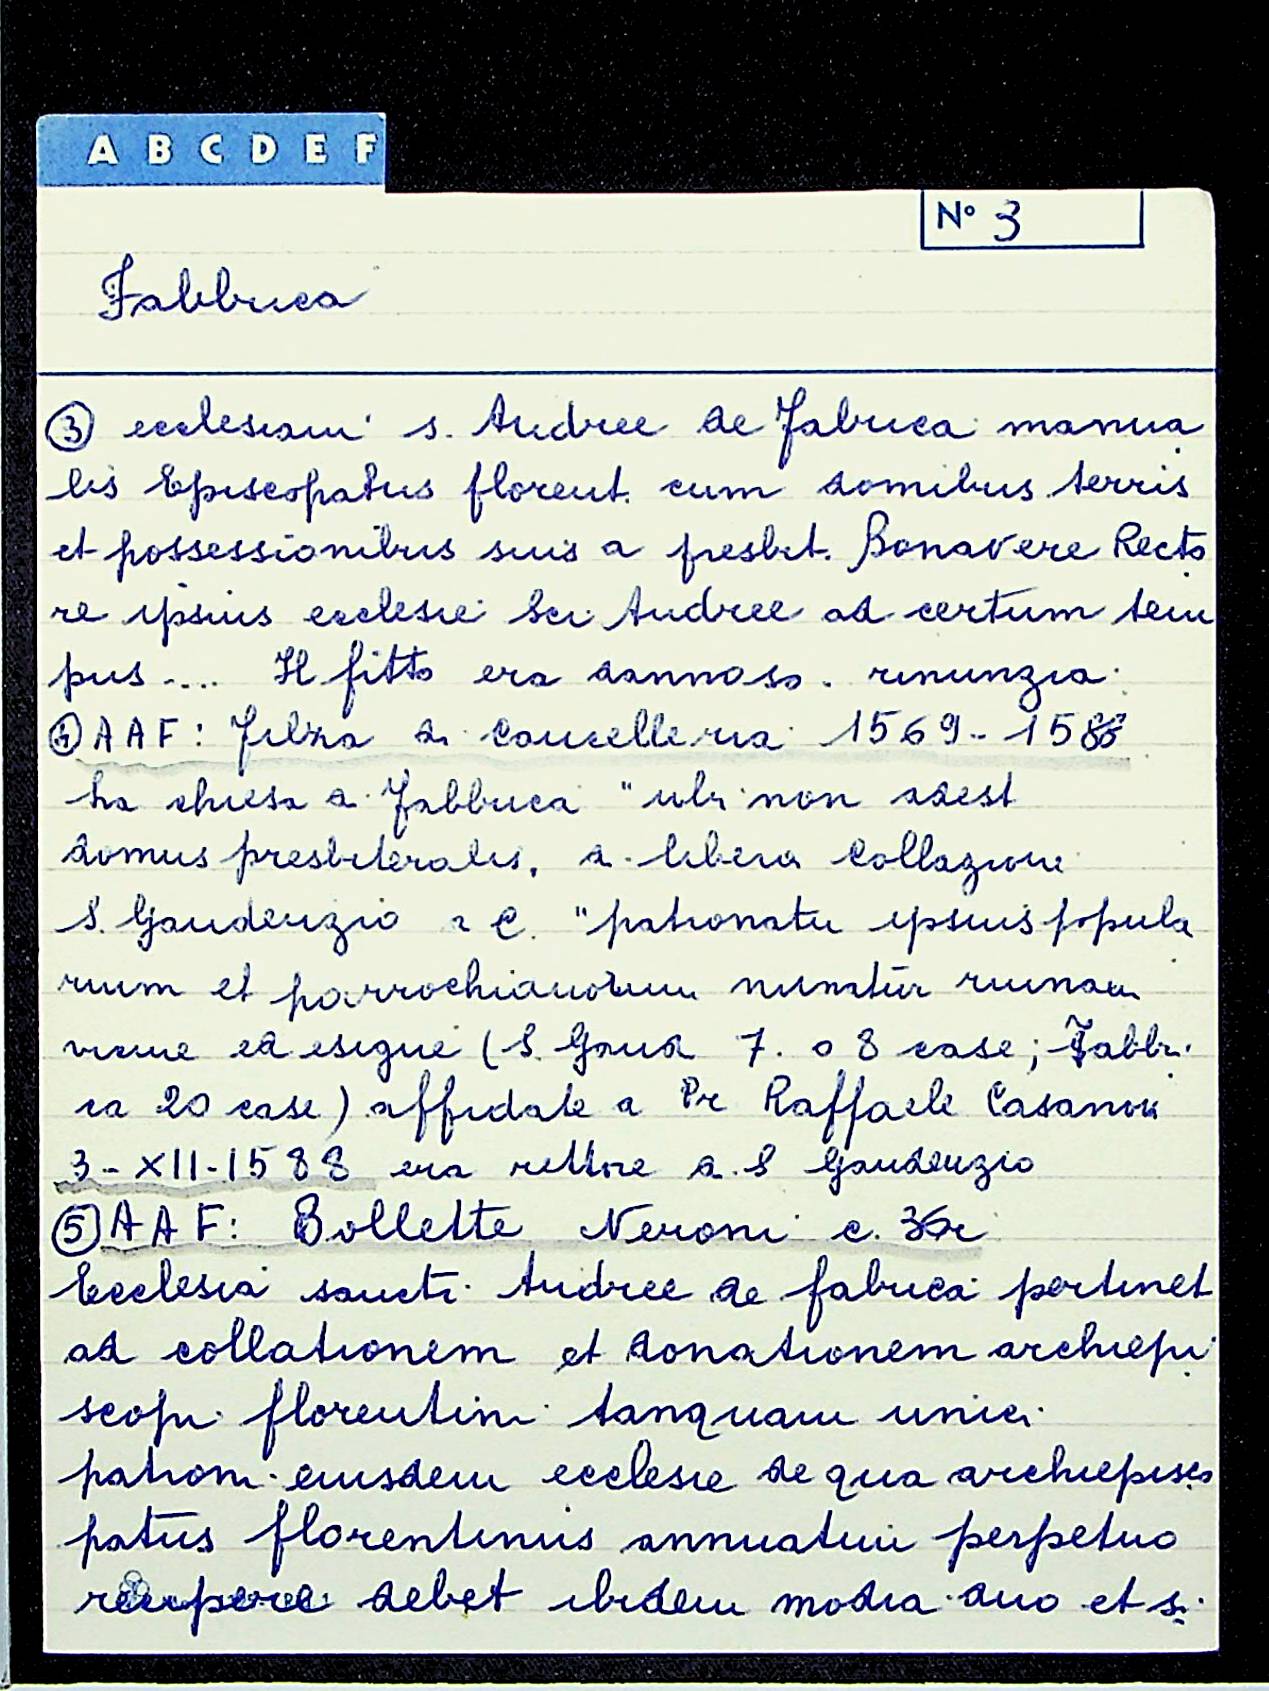 A B C D E F
Nº 3
Fabbrica
③ ecclesiam s. Andree de Fabrica manua
lis Episcopatus florent. cum domibus terris
et possessionibus suis a presbit. Bonavere Recto
re ipsius ecclesie Sci Andree ad certum tem
pus .... Il fitto era dannoso. rinunzia
④ AAF: Filza di Cancelleria 1569-1588
La chiesa di Fabbrica "ubi non adest
domus presbiteralis, di libera Collazione
S. Gaudenzio a C. "patronatu ipsius popula
rium et parrochianorum ruinam
viene ed esigue (S. Gaud 7. o 8 case; Fabbri
ca 20 case) affidate a Pr Raffaele Casanovi
3-XII-1588 era rettore di S Gaudenzio
⑤ AAF: Bollette Neroni c. 36r
Ecclesia sancti Andree de fabrica pertinet
ad collationem et donationem archiepi
scopi florentini tanquam unici
patroni eiusdem ecclesie de qua archiepisco
patus florentinus annuatim perpetuo
recipere debet ibidem modia duo et s.